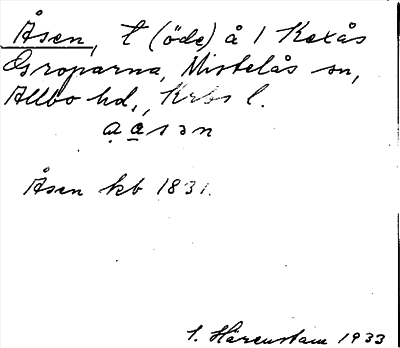 Åsen, t (öde) å 1 Kexås
Groparna, Mistelås sn,
Allbo hd, Krbs l.
a̤ a̤ s ə n
Åsen kb 1831.
S. Härenstam 1933